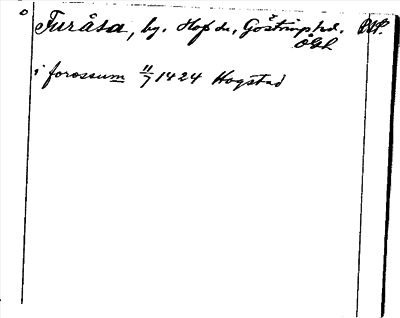 Furåsa, by. Hofs sn., Göstrings hd.
Ögl
i forossum 11/7 1424 Hogstad